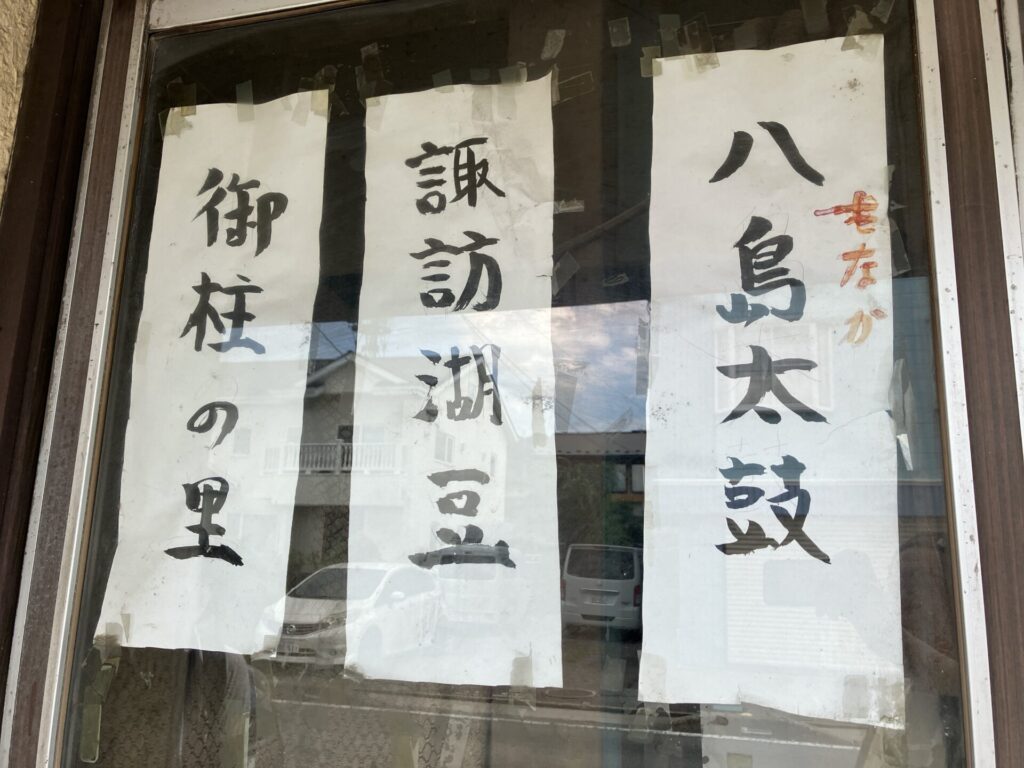 もなか
八島太鼓
諏訪湖豆
御柱の里